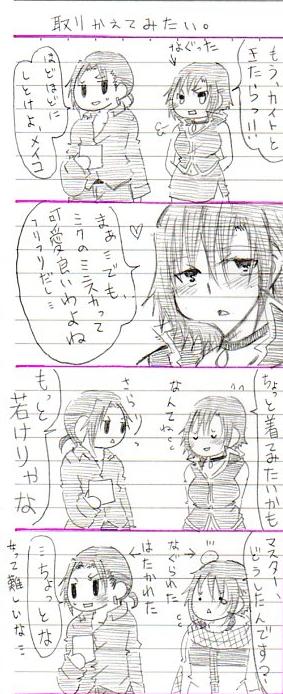 取りかえてみたい。
もう、カイトと
きたらっ!!
なぐった
ほどほどに
しとけよ、メイコ
まぁ…でも、
ミクのミニスカって
可愛良いわよね
フリフリだし…
ちょっと着てみたいかも
なんてね
さらっ
もっと
若けりゃな
マスター、
どうしたんです?
なぐられた
はたかれた
…ちょっとな
女って難しいな…